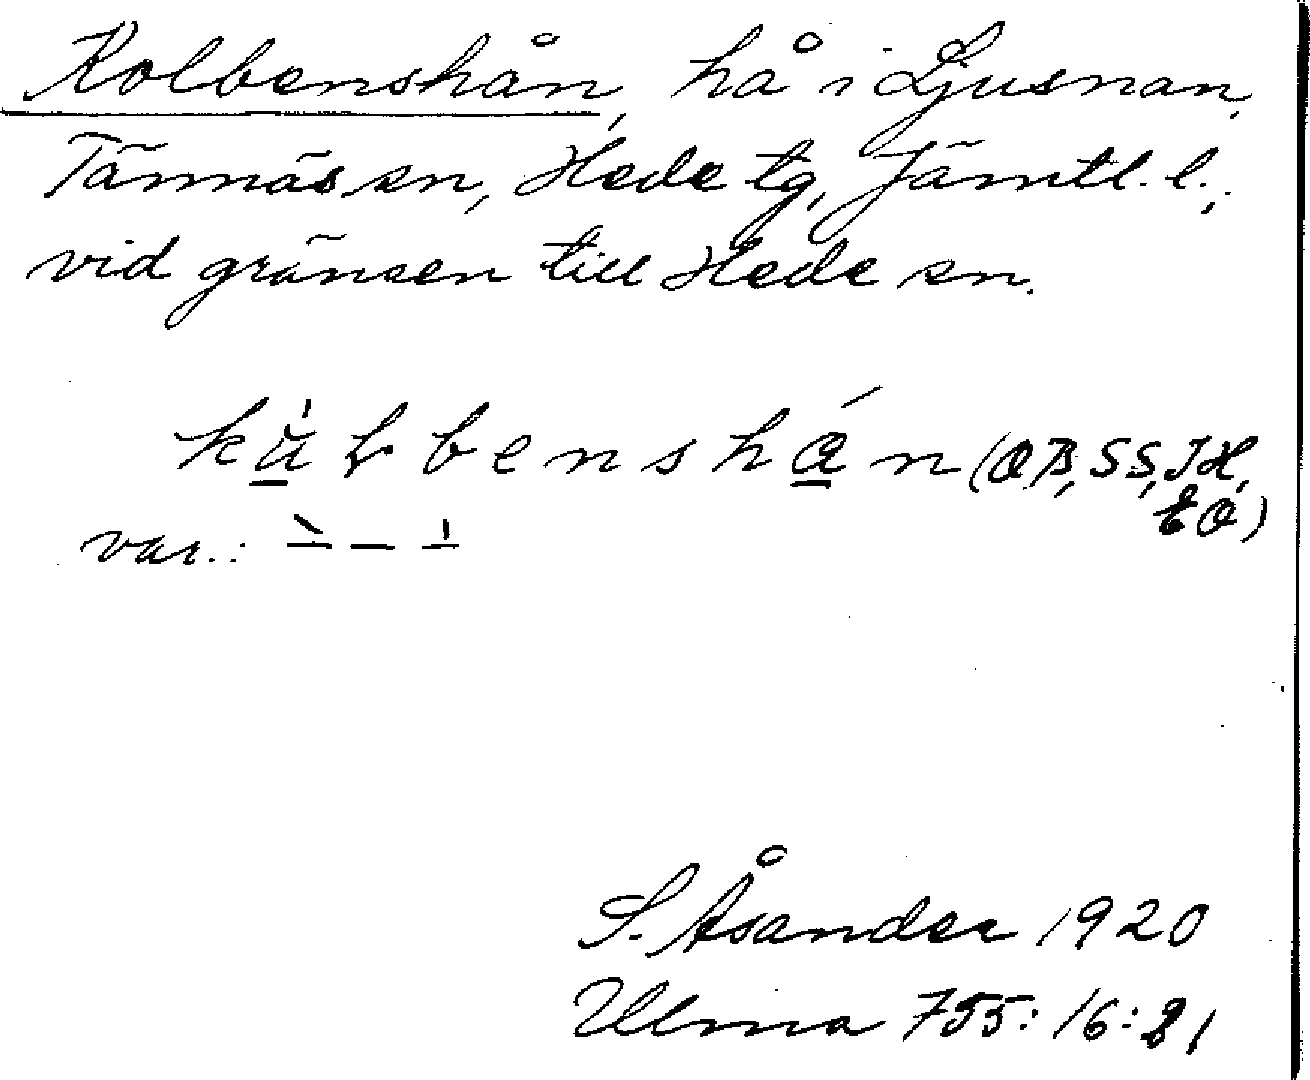 Kolbenshån, hå i Ljusnan,
Tännäs sn, Hede tg, Jämtl. l.,
vid gränsen till Hede sn.
benshån (OB, SS, JH,
EO)
var.:
S. Åsander 1920
Ulma 755:16:81